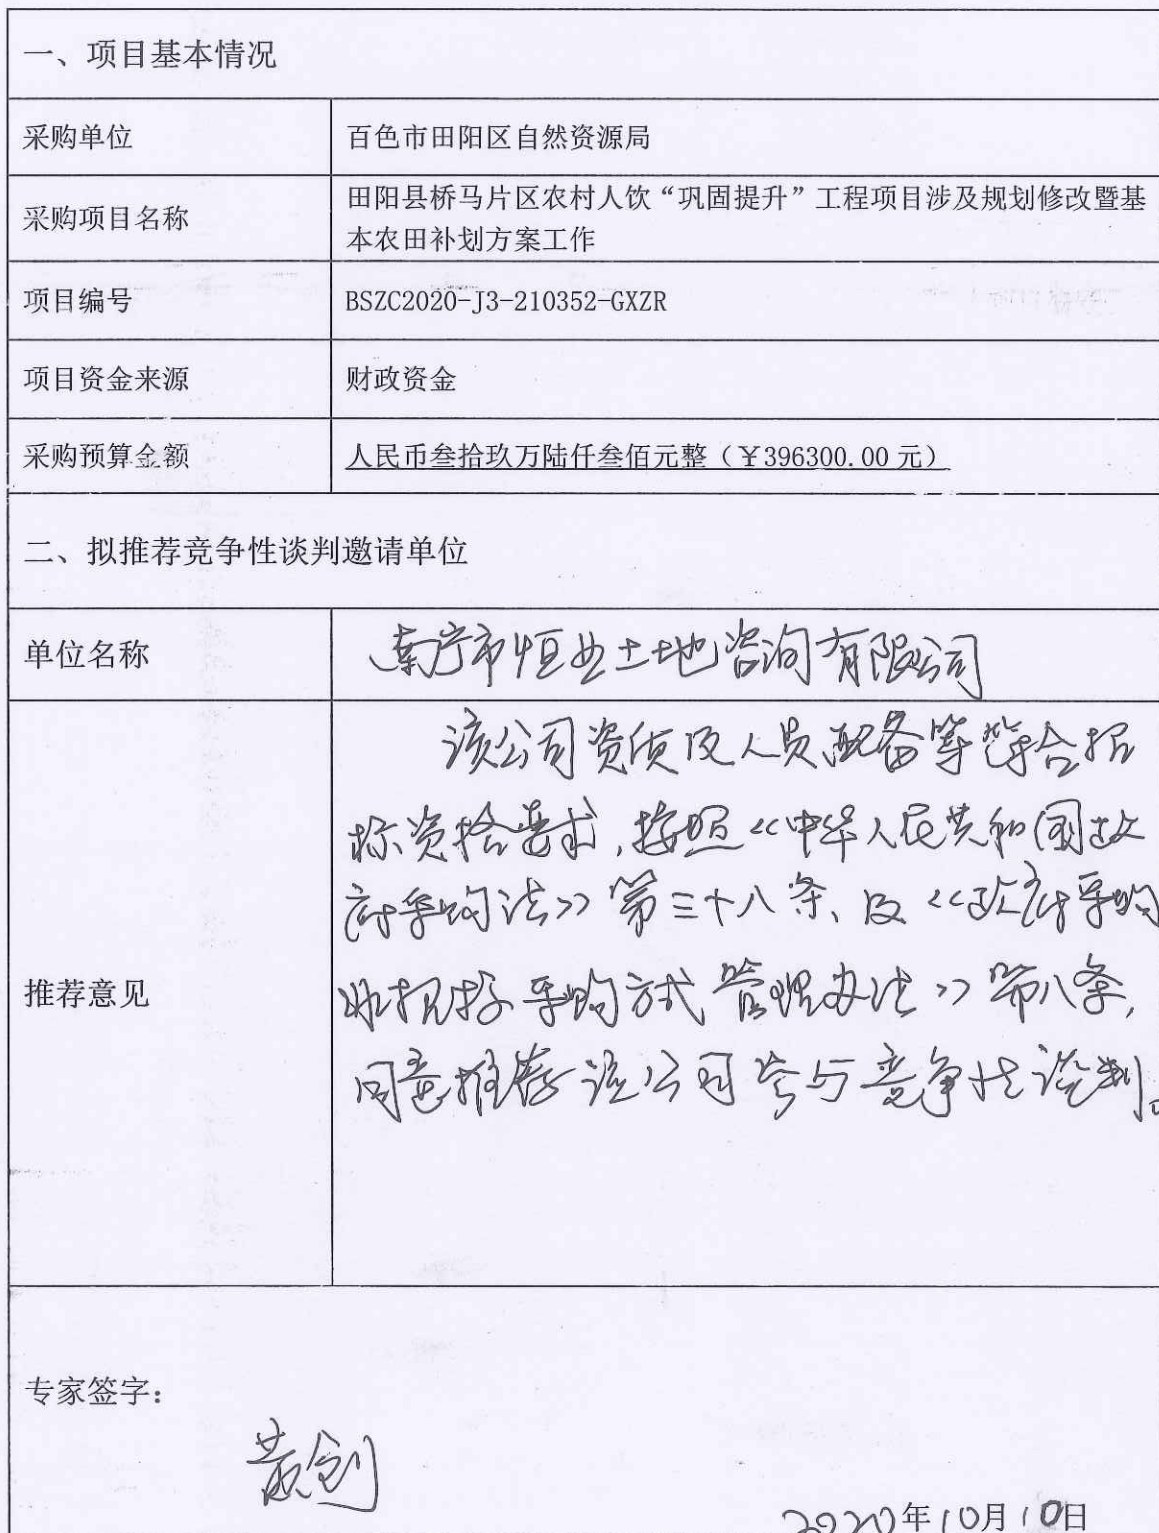 一、项目基本情况
采购单位
百色市田阳区自然资源局
采购项目名称
田阳县桥马片区农村人饮“巩固提升”工程项目涉及规划修改暨基
本农田补划方案工作
项目编号
BSZC2020-J3-210352-GXZR
项目资金来源
财政资金
采购预算金额
人民币叁拾玖万陆仟叁佰元整（￥396300.00 元）
二、拟推荐竞争性谈判邀请单位
单位名称
南宁市恒业土地咨询有限公司
推荐意见
该公司资质及人员配备等符合招
标资格要求，按照《中华人民共和国政
府采购法》第三十八条、及《政府采购
非招标采购方式管理办法》第八条，
同意推荐该公司参与竞争性谈判。
专家签字：
2020年10月10日